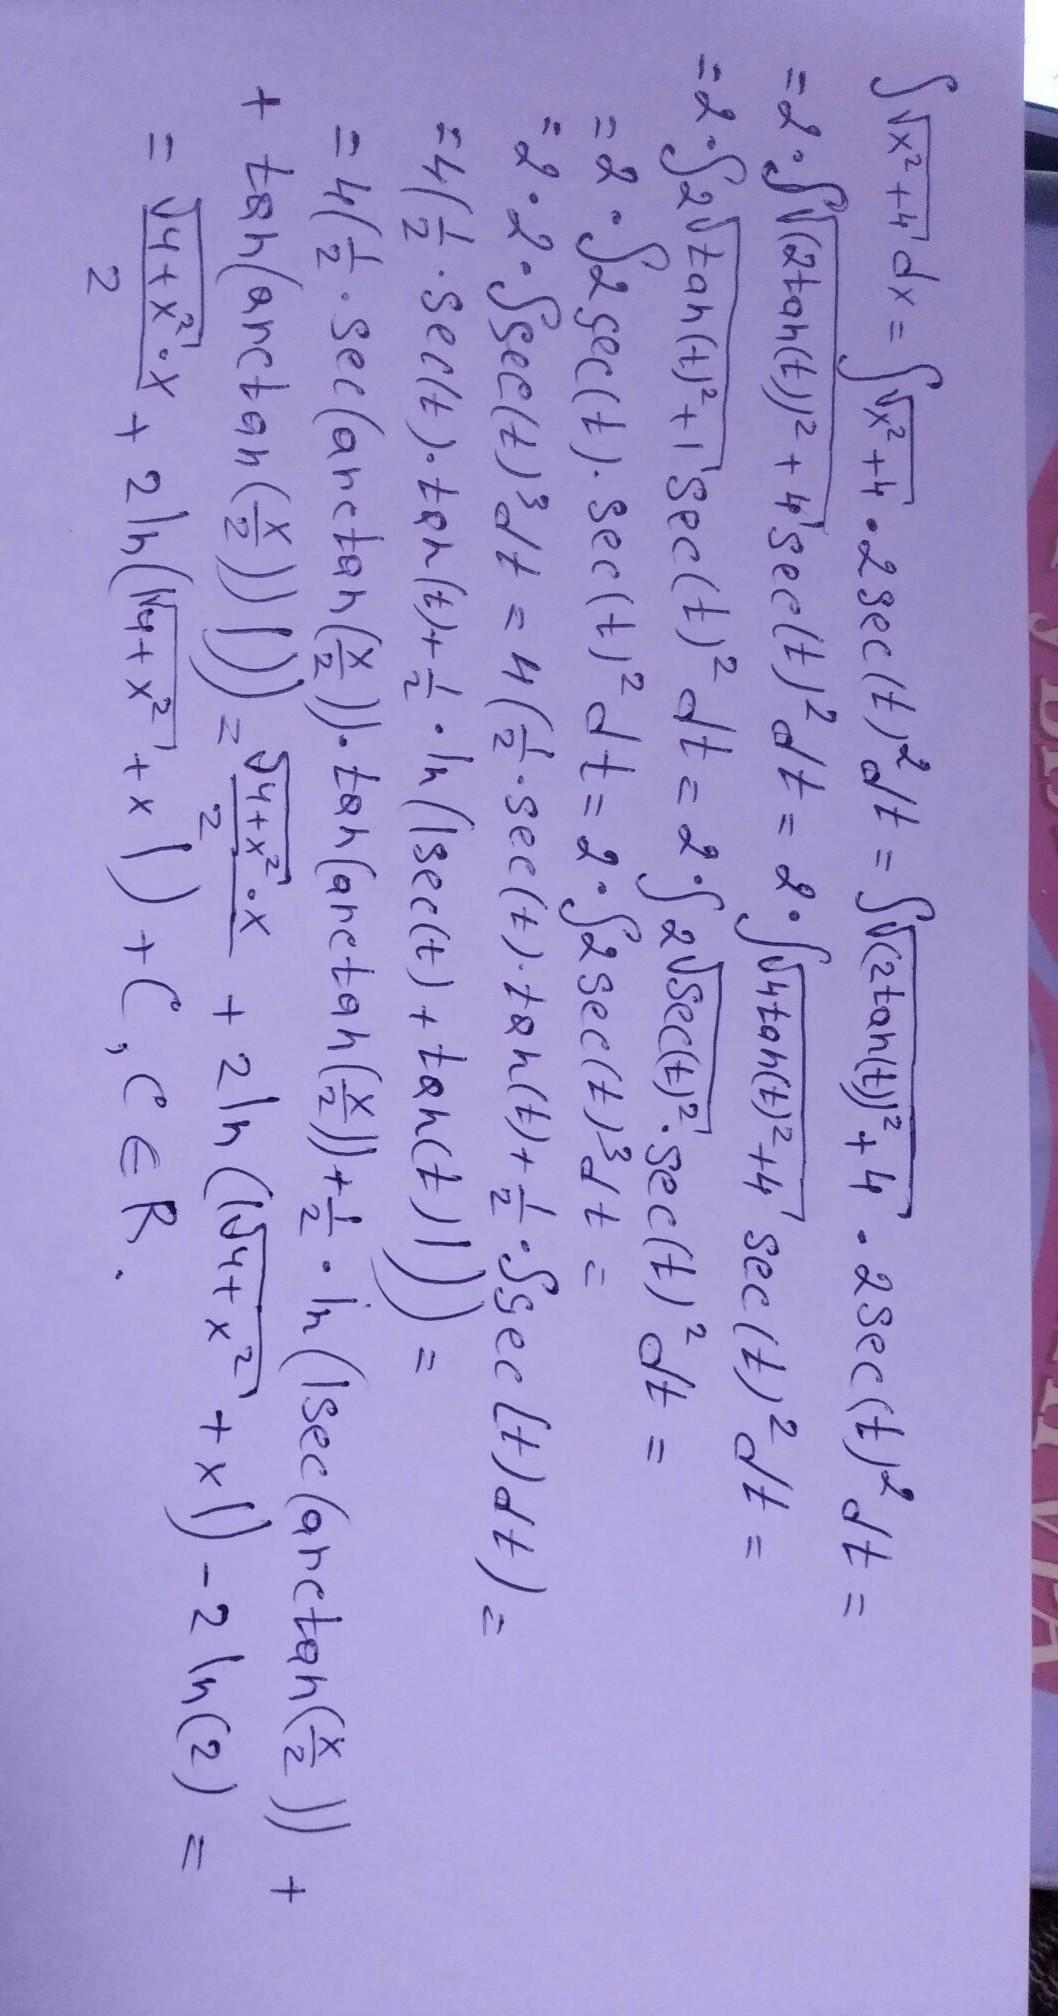 ∫√(x²+4) dx = ∫√(x²+4) · 2sec(t)² dt = ∫√((2tan(t))²+4) · 2sec(t)² dt =
= 2 · ∫√((2tan(t))²+4) sec(t)² dt = 2 · ∫√(4tan(t)²+4) sec(t)² dt =
= 2 · ∫2√(tan(t)²+1) sec(t)² dt = 2 · ∫2√(sec(t)²) · sec(t)² dt =
= 2 · ∫2sec(t) · sec(t)² dt = 2 · ∫2sec(t)³ dt =
= 2 · 2 · ∫sec(t)³ dt = 4(1/2 · sec(t) · tan(t) + 1/2 · ∫sec(t) dt) =
= 4(1/2 · sec(t) · tan(t) + 1/2 · ln(|sec(t) + tan(t)|)) =
= 4(1/2 · sec(arctan(x/2)) · tan(arctan(x/2)) + 1/2 · ln(|sec(arctan(x/2)) +
+ tan(arctan(x/2))|)) = √(4+x²) · x / 2 + 2ln(|√(4+x²) + x|) - 2ln(2) =
= √(4+x²) · x / 2 + 2ln(|√(4+x²) + x|) + C, C ∈ R.